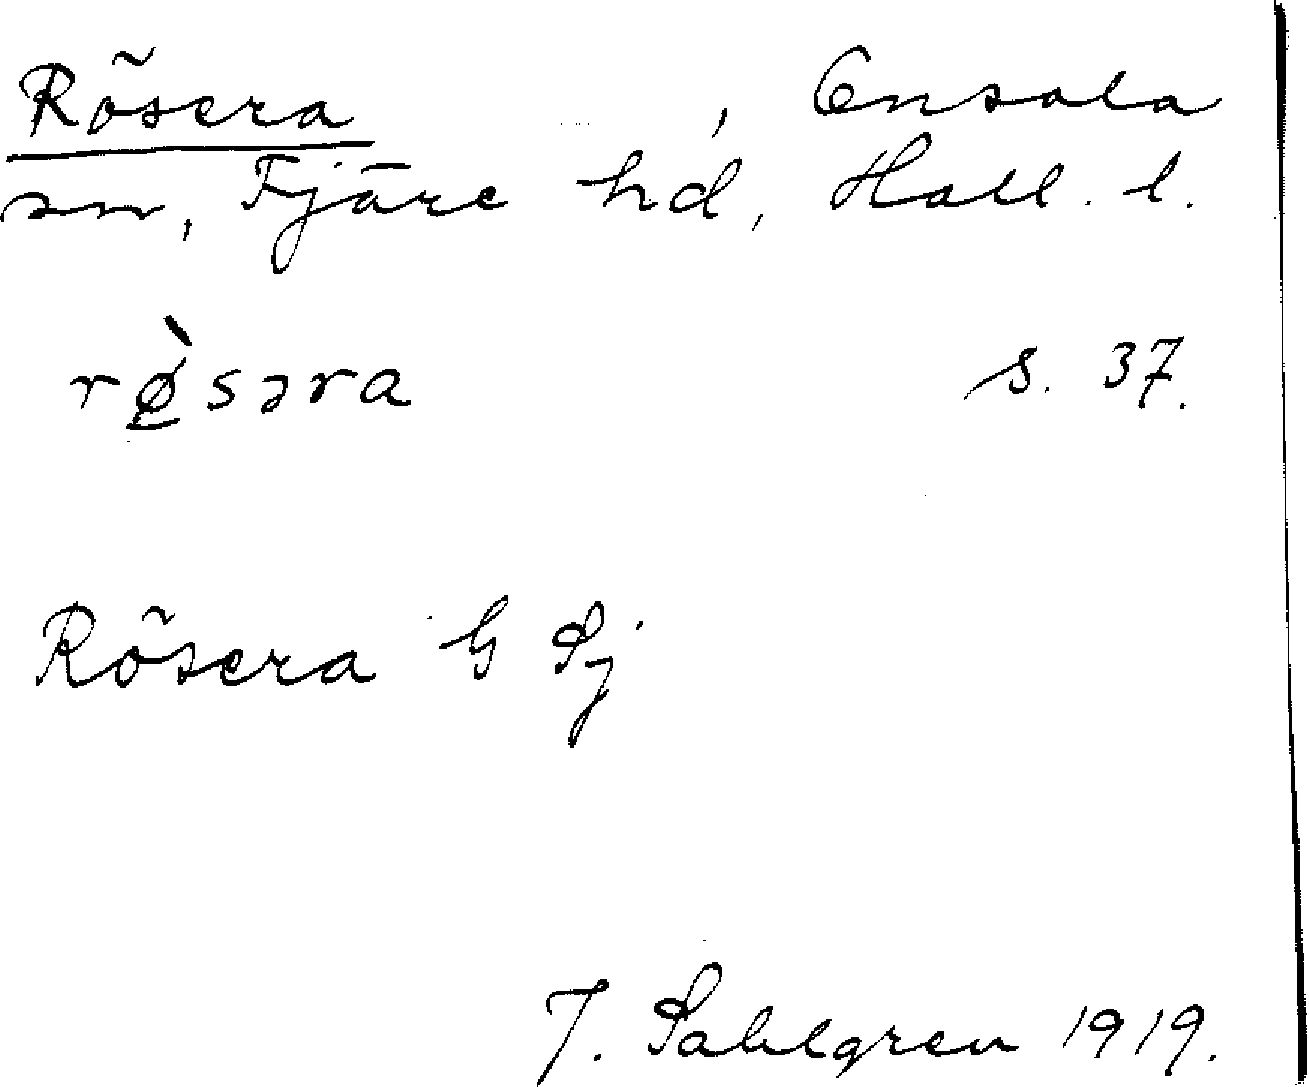 Rösera , Onsala
sn, Fjäre hd, Hall. l.
rø̱̀səra s. 37.
Rösera G Sj
J. Sahlgren 1919.